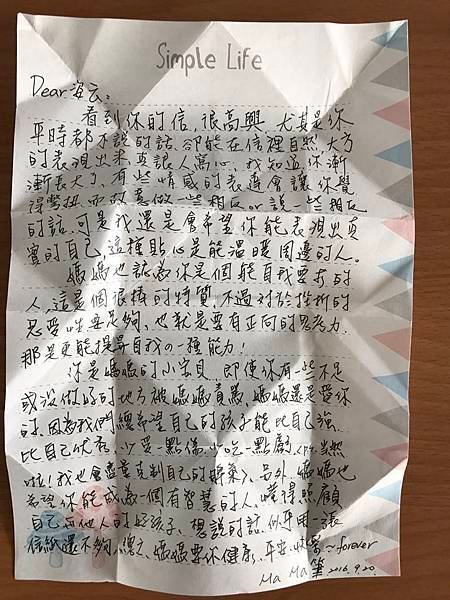 Simple Life
Dear 姿云：
看到你的信，很高興，尤其是你
平時都不說的話，卻能在信裡自然、大方
的表現出來，真讓人窩心，我知道你漸
漸長大了，有些情感的表達會讓你覺
得彆扭而故意做一些相反or說一些相反
的話，可是我還是會希望你能表現出真
實的自己，這種貼心是能溫暖周邊的人。
媽媽也認為你是個能自我要求的
人，這是個很棒的特質，不過對於挫折的
忍受度要足夠，也就是要有正向的思考力，
那是更能提昇自我的一種能力！
你是媽媽的小寶貝，即使你有一些不足
或沒做好的地方被媽媽責罵，媽媽還是愛你
的，因為我們總希望自己的孩子能比自己強、
比自己優秀，少受一點傷、少吃一點虧，當然
啦！我也會盡量克制自己的脾氣，另外，媽媽也
希望你能成為一個有智慧的人，懂得照顧
自己與他人的好孩子，想說的話，似乎用一張
信紙還不夠，總之，媽媽要你健康、平安、快樂~forever
Ma Ma 筆 2016.9.20.